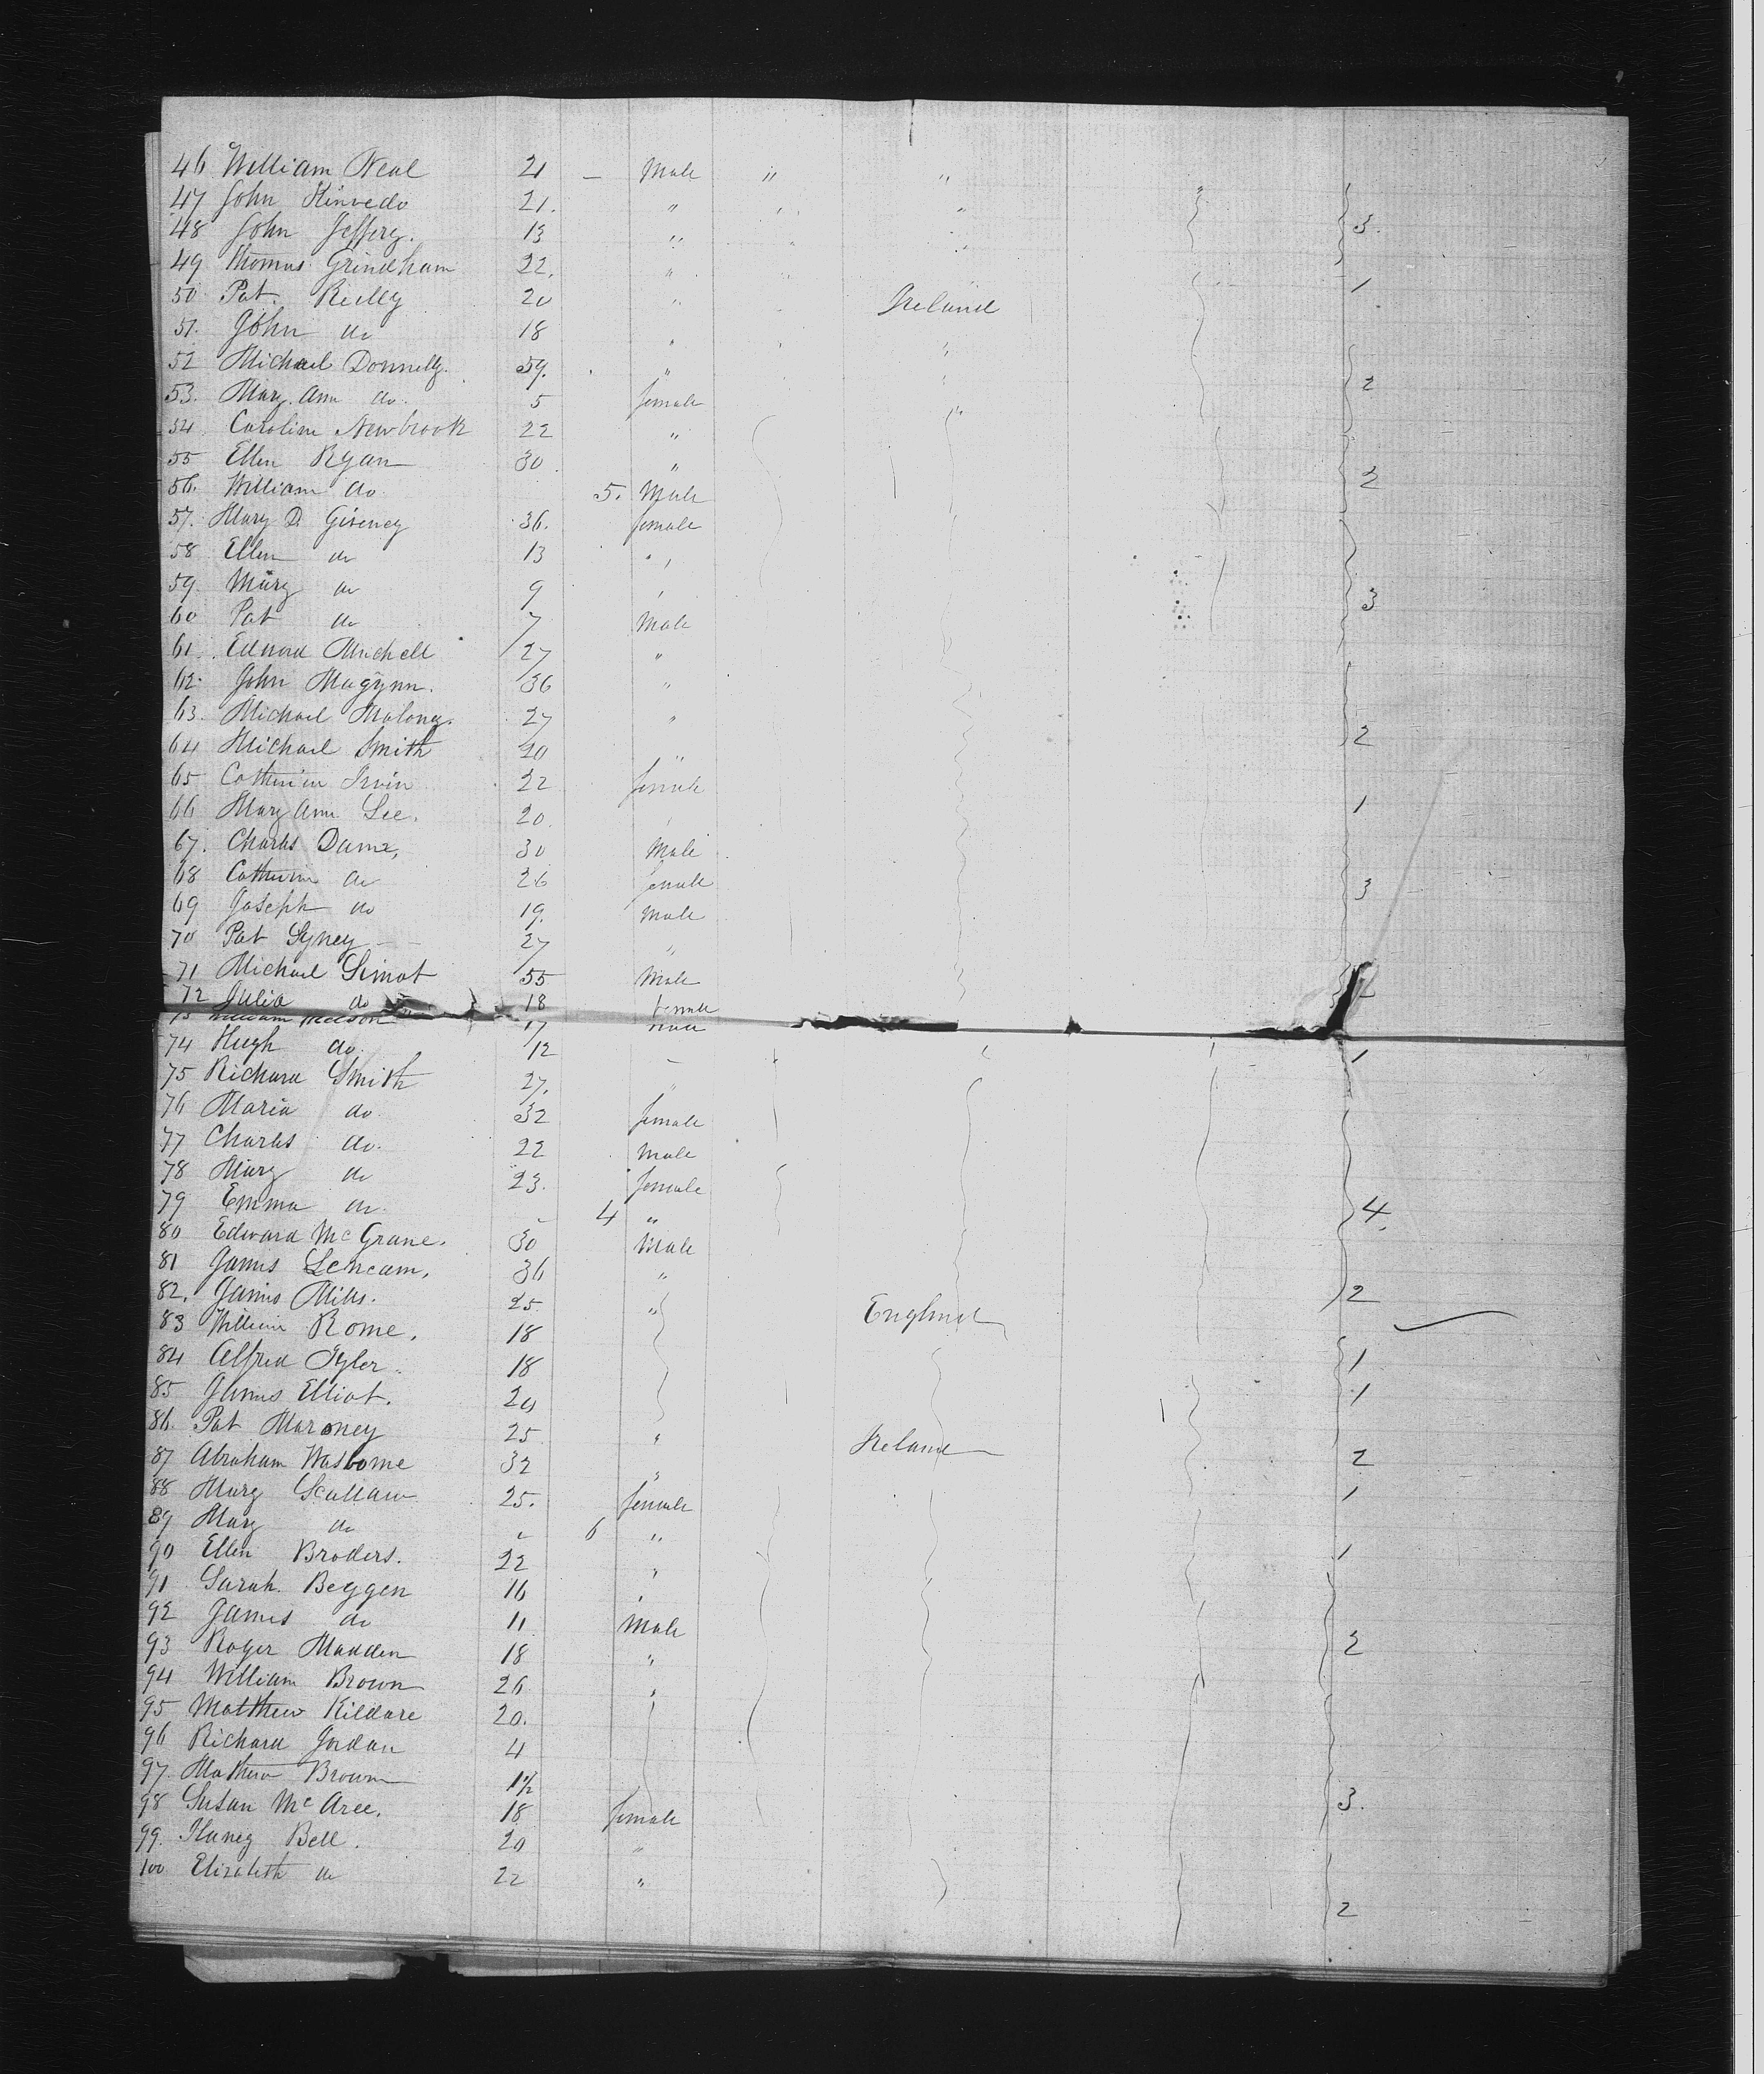 46 William Neal 21 — Male " "
47 John Kinvedo 21. " " " "
48 John Jeffery. 13 " " " 3.
49 Thomas Grindham 22. "
50 Pat. Reilly 20 " Ireland 1
51. John do 18 " " "
52 Michael Donnelly. 59. "
53. Mary Ann do. 5 female 2
54. Caroline Newbrook 22 " "
55 Ellen Ryan 30 "
56. William do 5. Male 2
57. Mary D. Giseney 36. female
58 Ellen do 13 "
59. Mary do 9 "
60 Pat do 7 Male 3
61. Edward Mitchell 27 "
62. John Magynn. 36 "
63. Michael Malony. 27 "
64 Michael Smith 20 " 2
65 Catherine Irvin 22 female
66 Mary Ann Lee. 20 1
67. Charles Dame, 30 Male
68 Catherine do 26 female
69 Joseph do 19. Male 3
70 Pat Syney 27 "
71 Michael Simot 55 Male
72 Julia do 18 female
73 William 17
74 Hugh do. 12 – 1
75 Richard Smith 27. "
76 Maria do. 32 female
77 Charles do. 22 Male
78 Mary do 23. female
79 Emma do. – 4 " 4.
80 Edward McGrane. 30 Male
81 James Lencam. 36 "
82. James Mills. 25 " England 2
83 William Rome. 18
84 Alfred Tyler. 18 1
85 James Elliot. 20 1
86. Pat Maroney 25 " Ireland
87 Abraham Wasborne 32 " 2
88 Mary Scullaw 25. female 1
89 Mary do " 6 "
90 Ellen Broders. 22 " 1
91 Sarah. Beggen 16 "
92 James do 11 Male
93 Roger Madden 18 " 2
94 William Brown 26 "
95 Matthew Kildare 20.
96 Richard Jordan 4
97. Mathew Brown 1½
98 Susan McAree. 18 female 3.
99. Haney Bell. 20 "
100 Elizabeth do 22 " 2